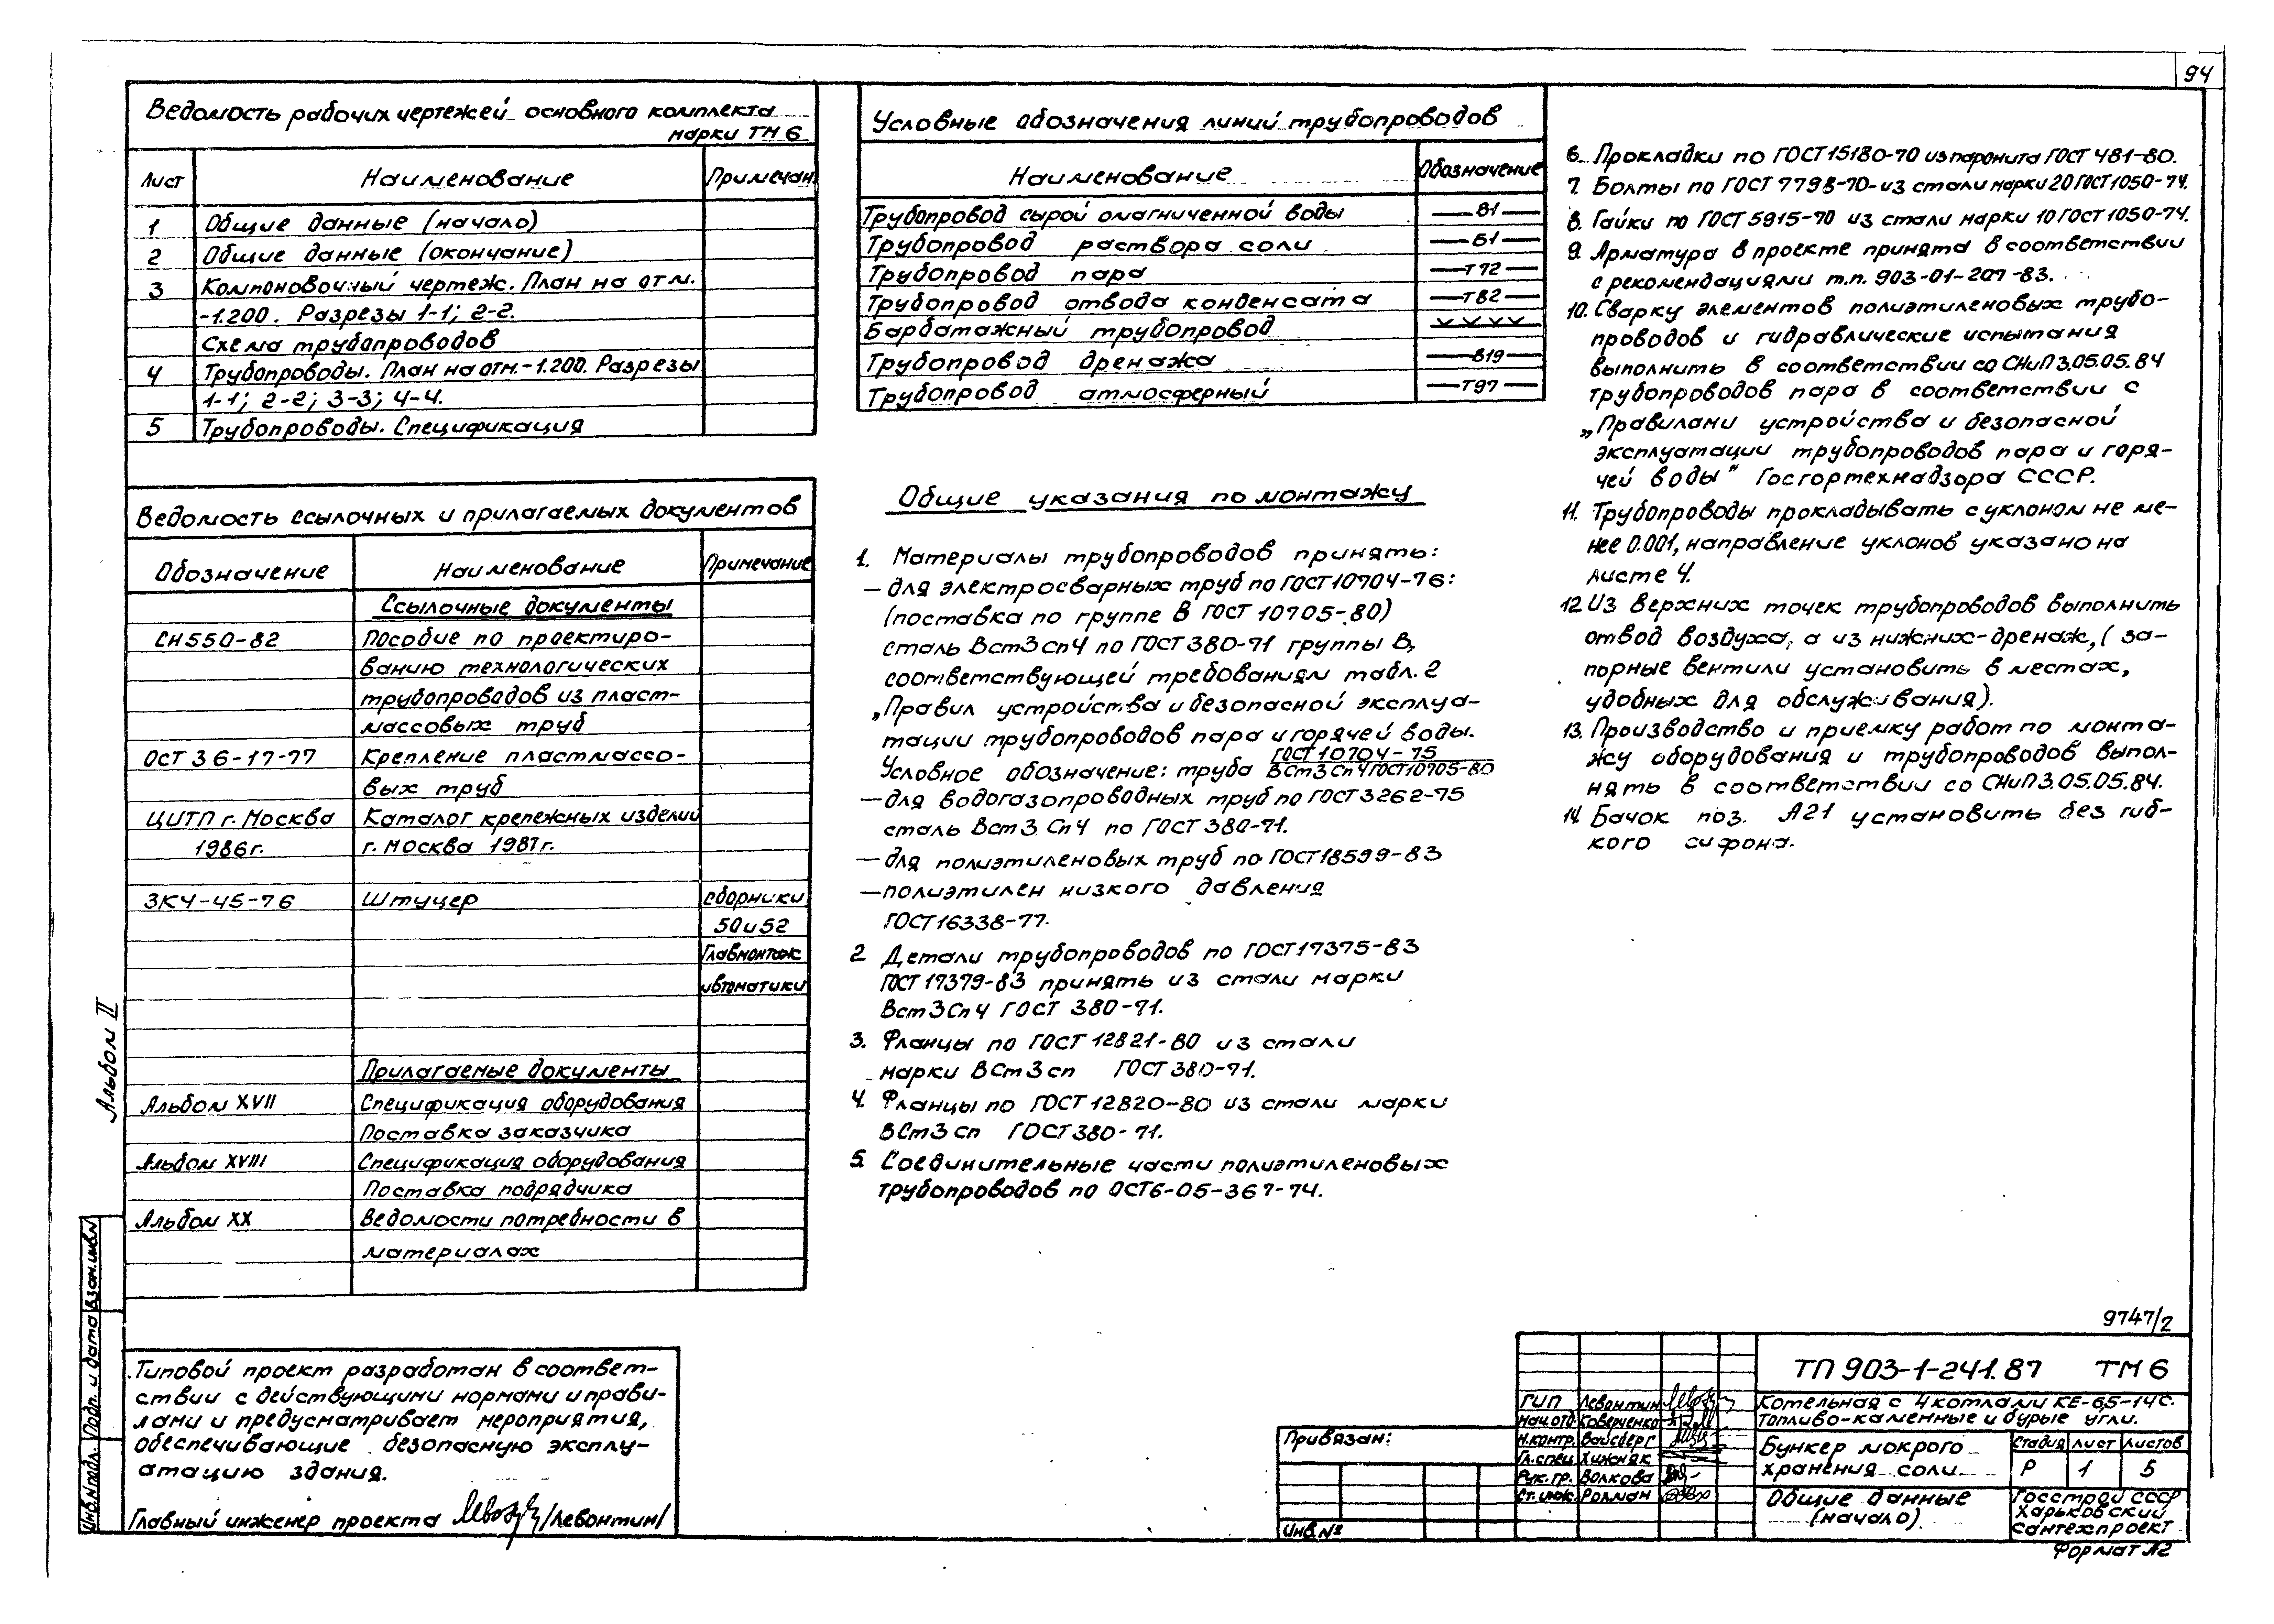 94
Ведомость рабочих чертежей основного комплекта
марки ТМ 6
Лист Наименование Примечан.
1 Общие данные (начало)
2 Общие данные (окончание)
3 Компоновочный чертеж. План на отм.
-1.200. Разрезы 1-1; 2-2.
Схема трубопроводов
4 Трубопроводы. План на отм. -1.200. Разрезы
1-1; 2-2; 3-3; 4-4.
5 Трубопроводы. Спецификация
Ведомость ссылочных и прилагаемых документов
Обозначение Наименование Примечание
Ссылочные документы
СН 550-82 Пособие по проектиро-
ванию технологических
трубопроводов из пласт-
массовых труб
ОСТ 36-17-77 Крепление пластмассо-
вых труб
ЦИТП г. Москва Каталог крепежных изделий
1986г. г. Москва 1987г.
ЗК4-45-76 Штуцер сборники
50 и 52
Главмонтаж
автоматики
Прилагаемые документы
Альбом XVII Спецификация оборудования
Поставка заказчика
Альбом XVIII Спецификация оборудования
Поставка подрядчика
Альбом XX Ведомости потребности в
материалах
Типовой проект разработан в соответ-
ствии с действующими нормами и прави-
лами и предусматривает мероприятия,
обеспечивающие безопасную эксплу-
атацию здания.
Главный инженер проекта /Левонтин/
Альбом II
Инв.№ подл. Подп. и дата Взам.инв.№
Условные обозначения линий трубопроводов
Наименование Обозначение
Трубопровод сырой омагниченной воды В1
Трубопровод раствора соли Б1
Трубопровод пара Т72
Трубопровод отвода конденсата Т82
Барботажный трубопровод
Трубопровод дренажа В19
Трубопровод атмосферный Т97
Общие указания по монтажу
1. Материалы трубопроводов принять:
— для электросварных труб по ГОСТ 10704-76:
(поставка по группе В ГОСТ 10705-80)
сталь Вст3сп4 по ГОСТ 380-71 группы В,
соответствующей требованиям табл. 2
„Правил устройства и безопасной эксплуа-
тации трубопроводов пара и горячей воды.
Условное обозначение: труба ГОСТ 10704-75
ВСт3Сп4 ГОСТ10705-80
— для водогазопроводных труб по ГОСТ 3262-75
сталь Вст3 Сп4 по ГОСТ 380-71.
— для полиэтиленовых труб по ГОСТ18599-83
— полиэтилен низкого давления
ГОСТ16338-77.
2. Детали трубопроводов по ГОСТ17375-83
ГОСТ 17379-83 принять из стали марки
Вст3Сп4 ГОСТ 380-71.
3. Фланцы по ГОСТ 12821-80 из стали
марки ВСт3сп ГОСТ 380-71.
4. Фланцы по ГОСТ 12820-80 из стали марки
ВСт3сп ГОСТ 380-71.
5. Соединительные части полиэтиленовых
трубопроводов по ОСТ6-05-367-74.
6. Прокладки по ГОСТ15180-70 из паронита ГОСТ 481-80.
7. Болты по ГОСТ 7798-70-из стали марки 20 ГОСТ1050-74.
8. Гайки по ГОСТ 5915-70 из стали марки 10 ГОСТ 1050-74.
9. Арматура в проекте принята в соответствии
с рекомендациями т.п. 903-01-207-83.
10. Сварку элементов полиэтиленовых трубо-
проводов и гидравлические испытания
выполнить в соответствии со СНиП 3.05.05.84
трубопроводов пара в соответствии с
„Правилами устройства и безопасной
эксплуатации трубопроводов пара и горя-
чей воды" Госгортехнадзора СССР.
11. Трубопроводы прокладывать с уклоном не ме-
нее 0.001, направление уклонов указано на
листе 4.
12. Из верхних точек трубопроводов выполнить
отвод воздуха, а из нижних-дренаж, (за-
порные вентили установить в местах,
удобных для обслуживания).
13. Производство и приемку работ по монта-
жу оборудования и трубопроводов выпол-
нять в соответствии со СНиП3.05.05.84.
14. Бачок поз. А21 установить без гиб-
кого сифона.
9747/2
Привязан:
Инв.№
ГИП Левонтин
Нач.отд Коверченко
Н.контр. Вайсберг
Гл.спец. Хижняк
Рук.гр. Волкова
Ст.инж. Рохман
ТП 903-1-241.87 ТМ 6
Котельная с 4 котлами КЕ-6,5-14С.
Топливо-каменные и бурые угли.
Бункер мокрого
хранения соли
Стадия Лист Листов
Р 1 5
Общие данные
(начало)
Госстрой СССР
Харьковский
Сантехпроект
Формат А2